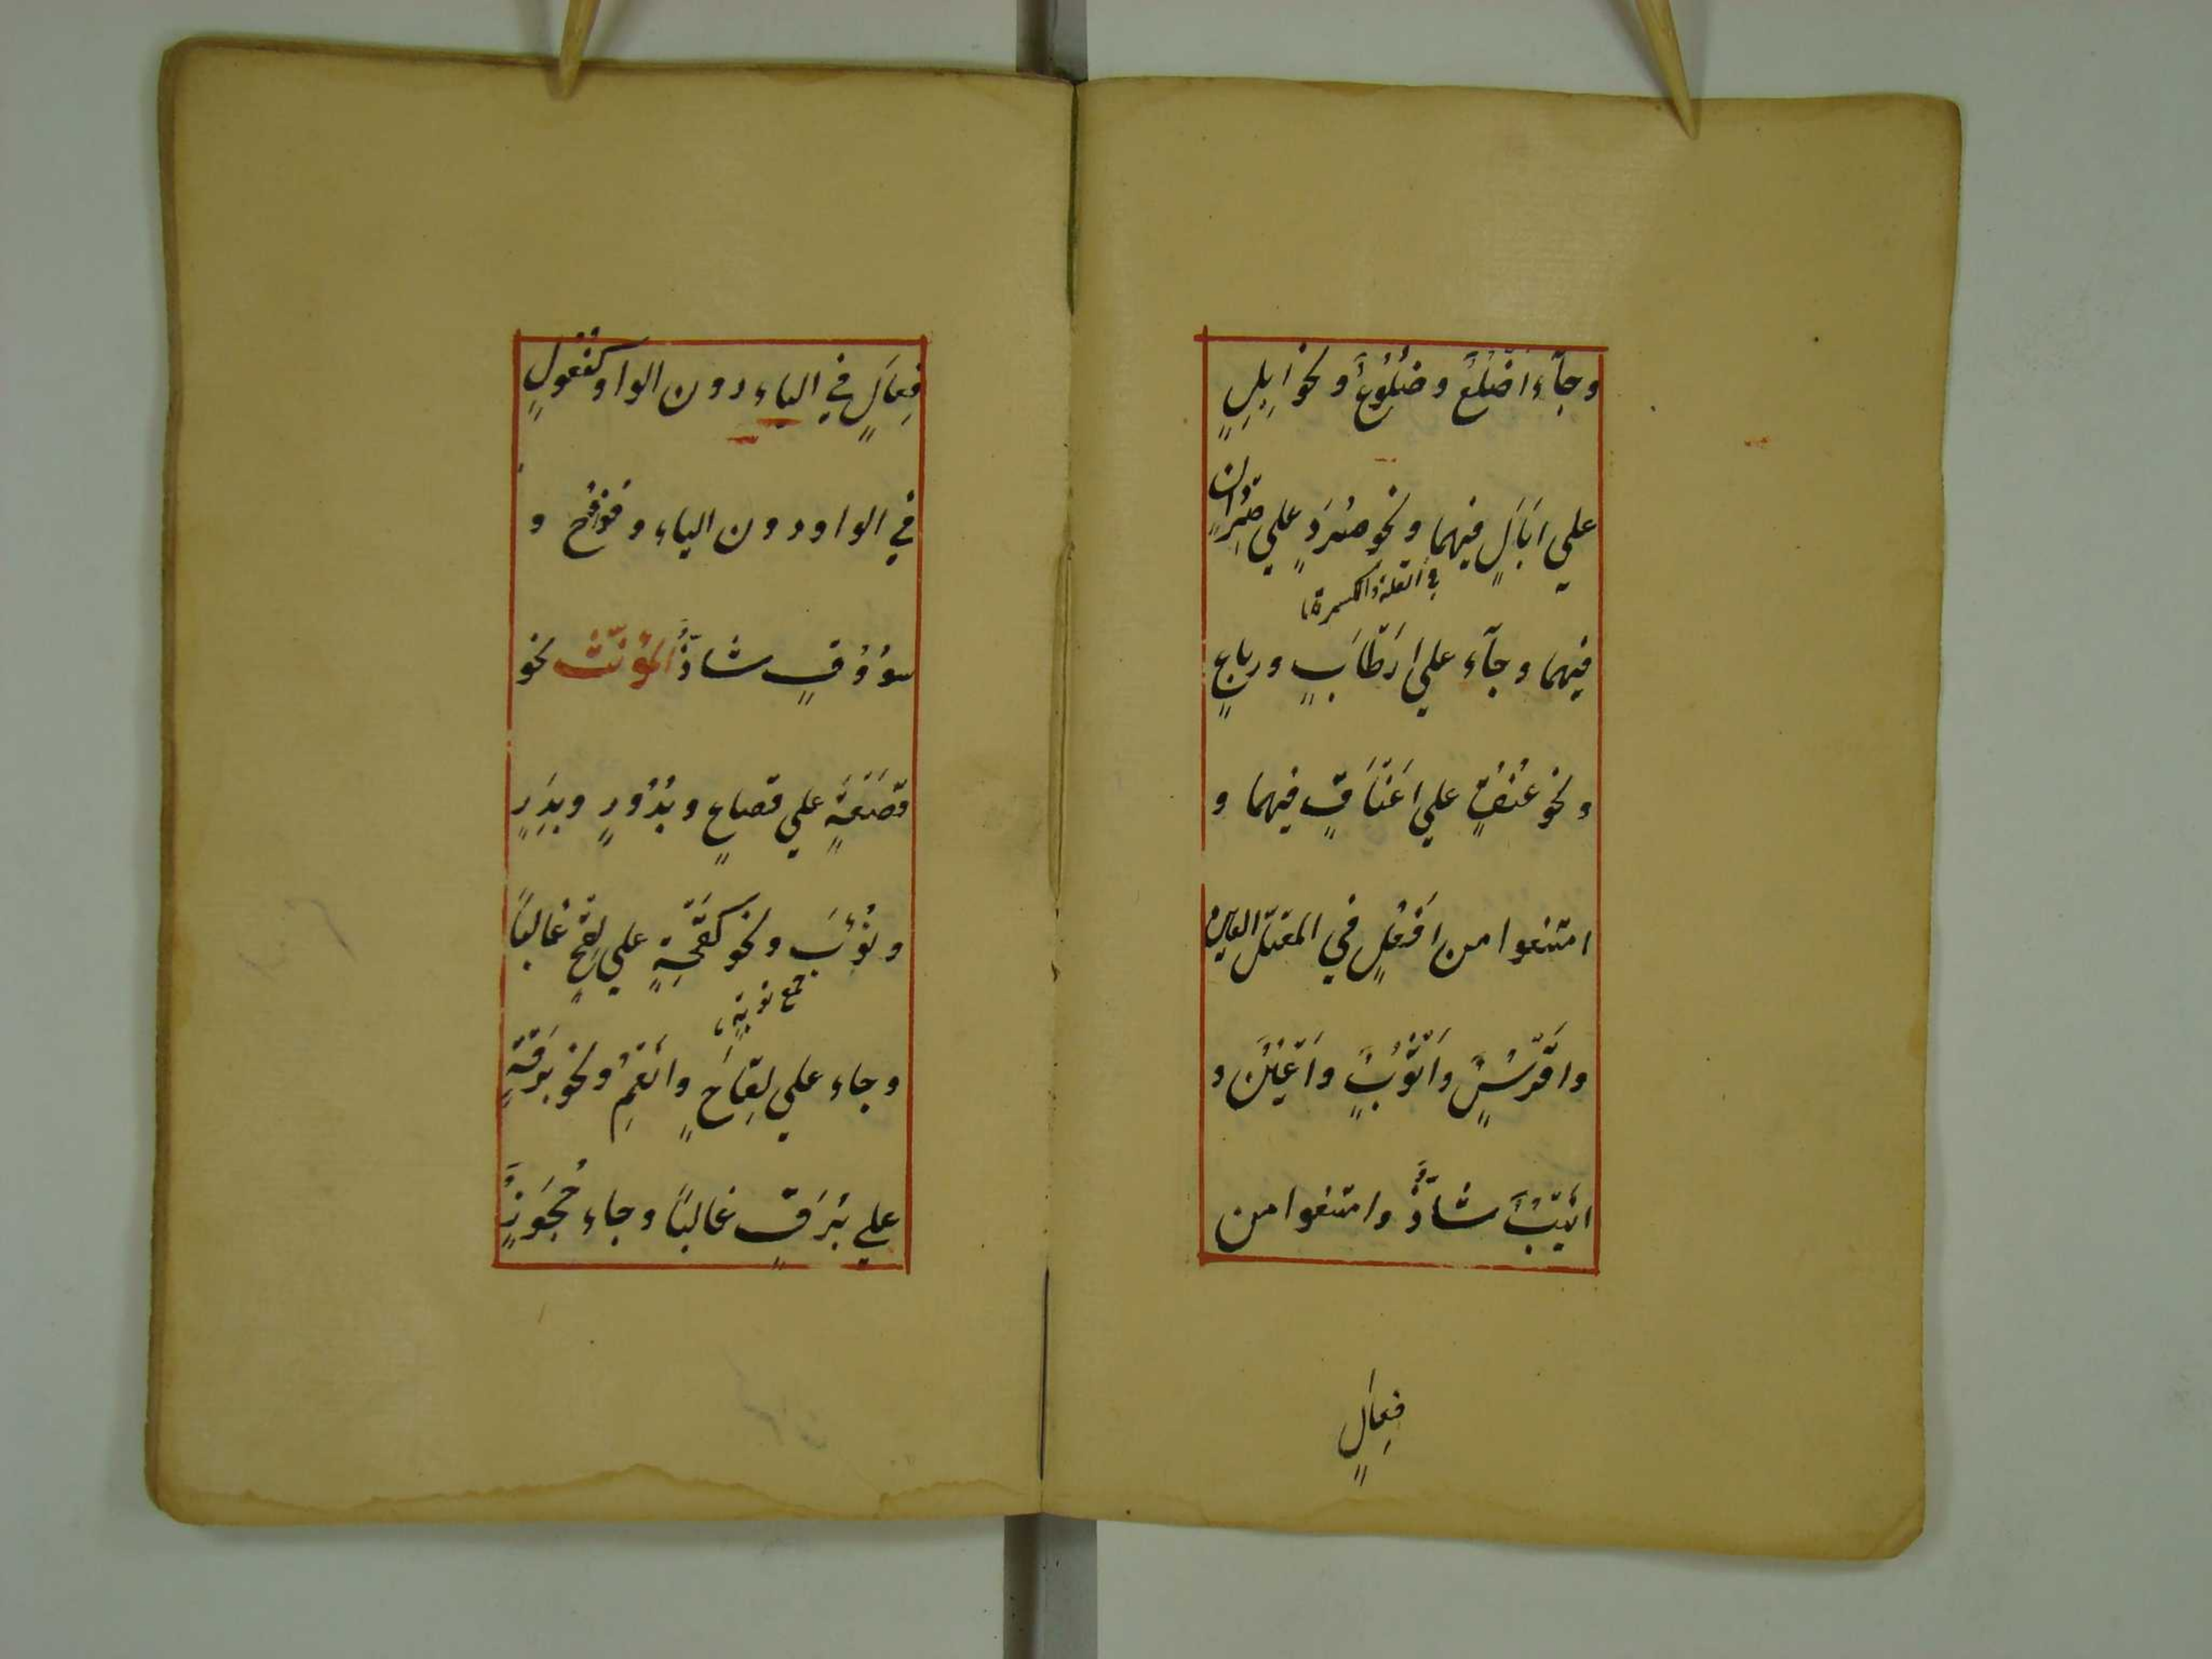 وجآء اَضْلُعٌ وضُلُوعٌ ونحو اِبِلٍ
علي ابَالٍ فيهما ونحو صُرَدٍ علي صِرْدَانٍ
في القلة والكسرة
فيهما وجآء علي ارْطَابٍ ورباعٍ
ونحو عُنُقٍ علي اعْنَاقٍ فيهما و
امتنعوا من اَفْعُلٍ في المعتل العين
واقْوُسٌ واَثْوُبٌ واَعْيُنٌ و
انْيُبٌ شاذٌّ وامتنعوا من
فِعَالٍ
فِعَالٍ في الياء دون الواو كفُعُولٍ
في الواو دون الياء وفُوُوْجٌ و
سُوُوْقٍ شاذٌّ المؤنّث نحو
قَصْعَةٍ علي قصاعٍ وبُدُورٍ وبِدَرٍ
ونُوَبٍ ونحو لِقْحَةٍ علي لِقَحٍ غالبًا
جمع نوبةٍ
وجاء علي لِقَاحٍ واَنْعُمٌ ونحو بُرْقَةٍ
علي بُرَقٍ غالبًا وجاء حُجُوزٌ